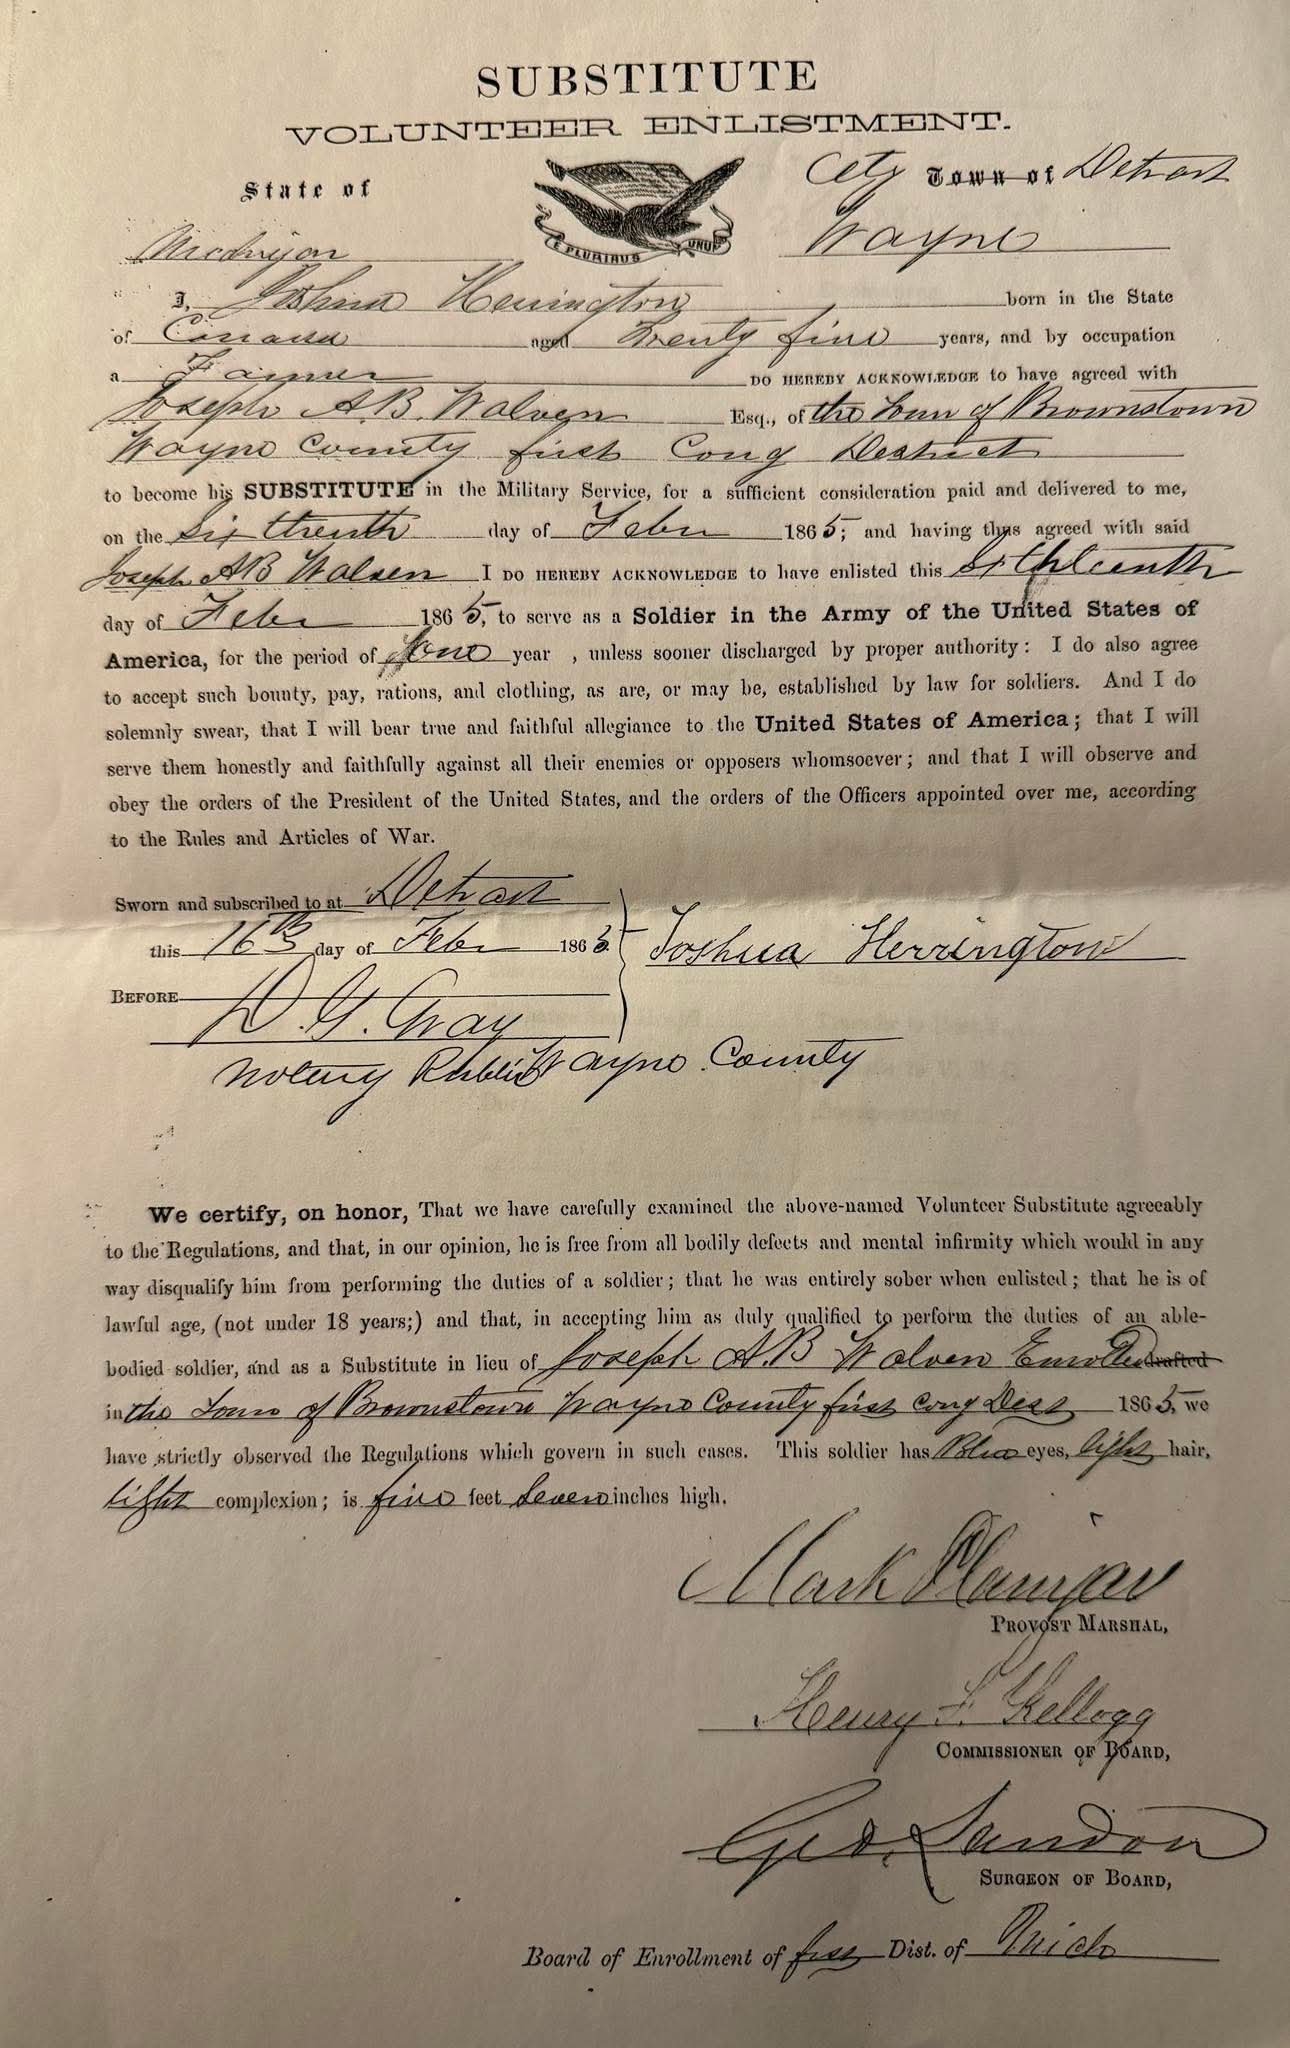 SUBSTITUTE
VOLUNTEER ENLISTMENT.
State of
City Town of Detroit
E PLURIBUS UNUM
Michigan
Wayne
I, Joshua Herrington born in the State
of Canada aged Twenty five years, and by occupation
a Farmer DO HEREBY ACKNOWLEDGE to have agreed with
Joseph A.B. Walven Esq., of the Town of Brownstown
Wayne County first Cong District
to become his SUBSTITUTE in the Military Service, for a sufficient consideration paid and delivered to me,
on the Sixteenth day of Feby 1865; and having thus agreed with said
Joseph AB Walven I DO HEREBY ACKNOWLEDGE to have enlisted this Sixteenth
day of Feby 1865, to serve as a Soldier in the Army of the United States of
America, for the period of One year , unless sooner discharged by proper authority: I do also agree
to accept such bounty, pay, rations, and clothing, as are, or may be, established by law for soldiers. And I do
solemnly swear, that I will bear true and faithful allegiance to the United States of America; that I will
serve them honestly and faithfully against all their enemies or opposers whomsoever; and that I will observe and
obey the orders of the President of the United States, and the orders of the Officers appointed over me, according
to the Rules and Articles of War.
Sworn and subscribed to at Detroit
this 16th day of Feby 1865
Joshua Herrington
BEFORE
D. G. Gray
Notary Public Wayne County
We certify, on honor, That we have carefully examined the above-named Volunteer Substitute agreeably
to the Regulations, and that, in our opinion, he is free from all bodily defects and mental infirmity which would in any
way disqualify him from performing the duties of a soldier; that he was entirely sober when enlisted; that he is of
lawful age, (not under 18 years;) and that, in accepting him as duly qualified to perform the duties of an able-
bodied soldier, and as a Substitute in lieu of Joseph A.B Walven Enrolled drafted
in the Town of Brownstown Wayne County first Cong Dist 1865, we
have strictly observed the Regulations which govern in such cases. This soldier has Blue eyes, light hair,
light complexion; is five feet seven inches high.
Mark Flanigan
PROVOST MARSHAL,
Henry F. Kellogg
COMMISSIONER OF BOARD,
Geo. Landon
SURGEON OF BOARD,
Board of Enrollment of first Dist. of Mich